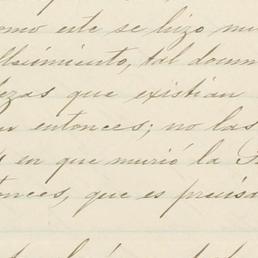 como este se hizo
tal docum
ezas que existian
entonces; no las
en que murió la
onces, que es precisa